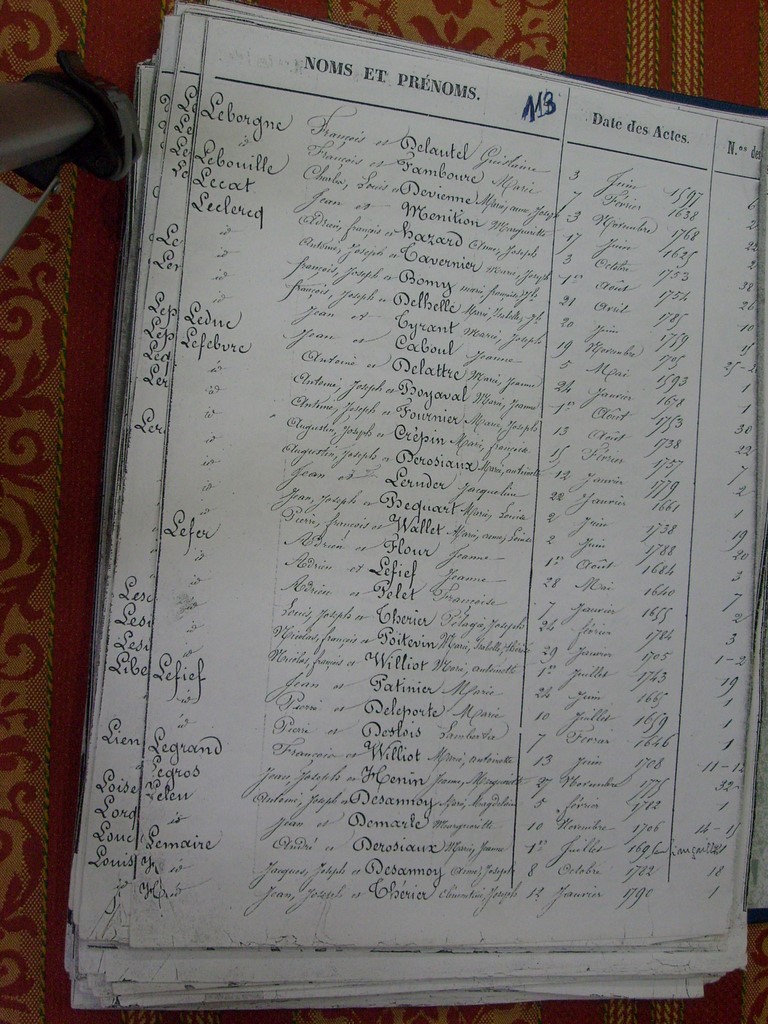 NOMS ET PRÉNOMS. 113 Date des Actes. N.os des
Leborgne François et Delautel Guislaine 3 Juin 1597 6
id François et Tamboure Marie 7 Février 1638 2
Lebouille Charles, Louis et Devienne Marie, anne, Joseph 3 Novembre 1768 22
Lecat Jean et Menition Marguerite 17 Juin 1625 2
Leclercq Adrien, françois et Hazard Anne, Joseph 3 Octobre 1753 38
id Antoine, Joseph et Tavernier Marie, Joseph 1er Août 1754 26
id françois, Joseph et Bomy marie, françoise, Jph 21 Avril 1785 10
id françois, Joseph et Delhelle Marie, Isabelle, Jph 20 Juin 1759 15
Leduc Jean et Tyrant Marie, Joseph 19 Novembre 1705 25-2
Lefebvre Jean et Caboul Jeanne 5 Mai 1593 1
id Antoine et Delattre Marie, Jeanne 24 Janvier 1678 1
id Antoine, Joseph et Boyaval Marie, Jeanne 1er Août 1753 30
id Antoine, Joseph et Fournier Marie, Joseph 13 Août 1738 22
id Augustin, Joseph et Crépin Marie, françoise 15 Février 1757 7
id Augustin, Joseph et Derosiaux Marie, antoinette 12 Janvier 1779 2
id Jean et Lernder Jacqueline 22 Janvier 1661 1
id Jean, Joseph et Bequart Marie, Louise 2 Juin 1738 19
id Pierre, françois et Wallet Marie, anne, Louise 2 Juin 1788 20
Lefer Adrien et Flour Jeanne 1er Août 1684 3
id Adrien et Lefief Jeanne 28 Mai 1640 7
id Adrien et Pelet Françoise 7 Janvier 1655 2
id Louis, Joseph et Thérier Pélagie, Joseph 24 février 1784 3
id Nicolas, françois et Poitevin Marie, Isabelle, Thérèse 29 Janvier 1705 1-2
id Nicolas, françois et Williot Marie, antoinette 1er Juillet 1743 19
Lefief Jean et Patinier Marie 24 Juin 1665 1
id Pierre et Deleporte Marie 10 Juillet 1659 1
id Pierre et Deslois Lambertine 7 Février 1646 1
Legrand François et Williot Marie, antoinette 13 Juin 1708 11-12
Legros Jean, Joseph et Henin Jeanne, Marguerite 27 Novembre 1775 32
Leleu Antoine, Joseph et Desannoy Marie, Magdeleine 5 février 1782 1
id Jean et Demarle Marguerite 10 Novembre 1706 14-15
Lemaire André et Derosiaux Marie, Jeanne 1er Juillet 1695
id Jacques, Joseph et Desannoy Anne, Joseph 8 Octobre 1782 18
id Jean, Joseph et Thérier Clémentine, Joseph 12 Janvier 1790 1
Lien
Loise
Lorg
Louc
Louis